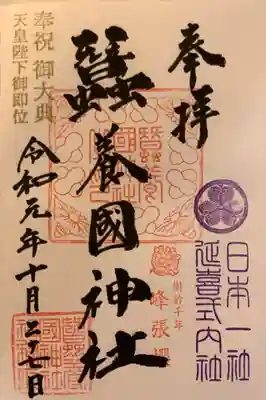 奉拝
日本一社
延喜式内社
樹齢千年
蠶養國神社
奉祝 御大典
天皇陛下御即位
令和元年十月二十七日